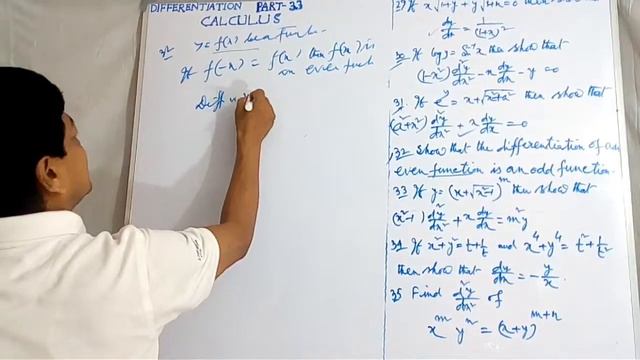 DIFFERENTIATION PART-33
CALCULUS
32 y = f(x) be a funct.
If f(-x) = f(x) then f(x) is
an even funct
Diff w
29 If x√1+y + y√1+x = 0 then show that
dy/dx = 1/(1+x)²
then show that
(1-x²) d²y/dx² - x dy/dx - y = 0
31. If e^y = x+√x²+a² then show that
(a²+x²) d²y/dx² + x dy/dx = 0
32 Show that the differentiation of an
even function is an odd function.
33 If y = (x+√x²-1)^m then show that
(x²-1) d²y/dx² + x dy/dx = m²y
34 If x²+y² = t+1/t and x⁴+y⁴ = t²+1/t²
then show that dy/dx = -y/x.
35 Find d²y/dx² of
x^m y^n = (x+y)^m+n